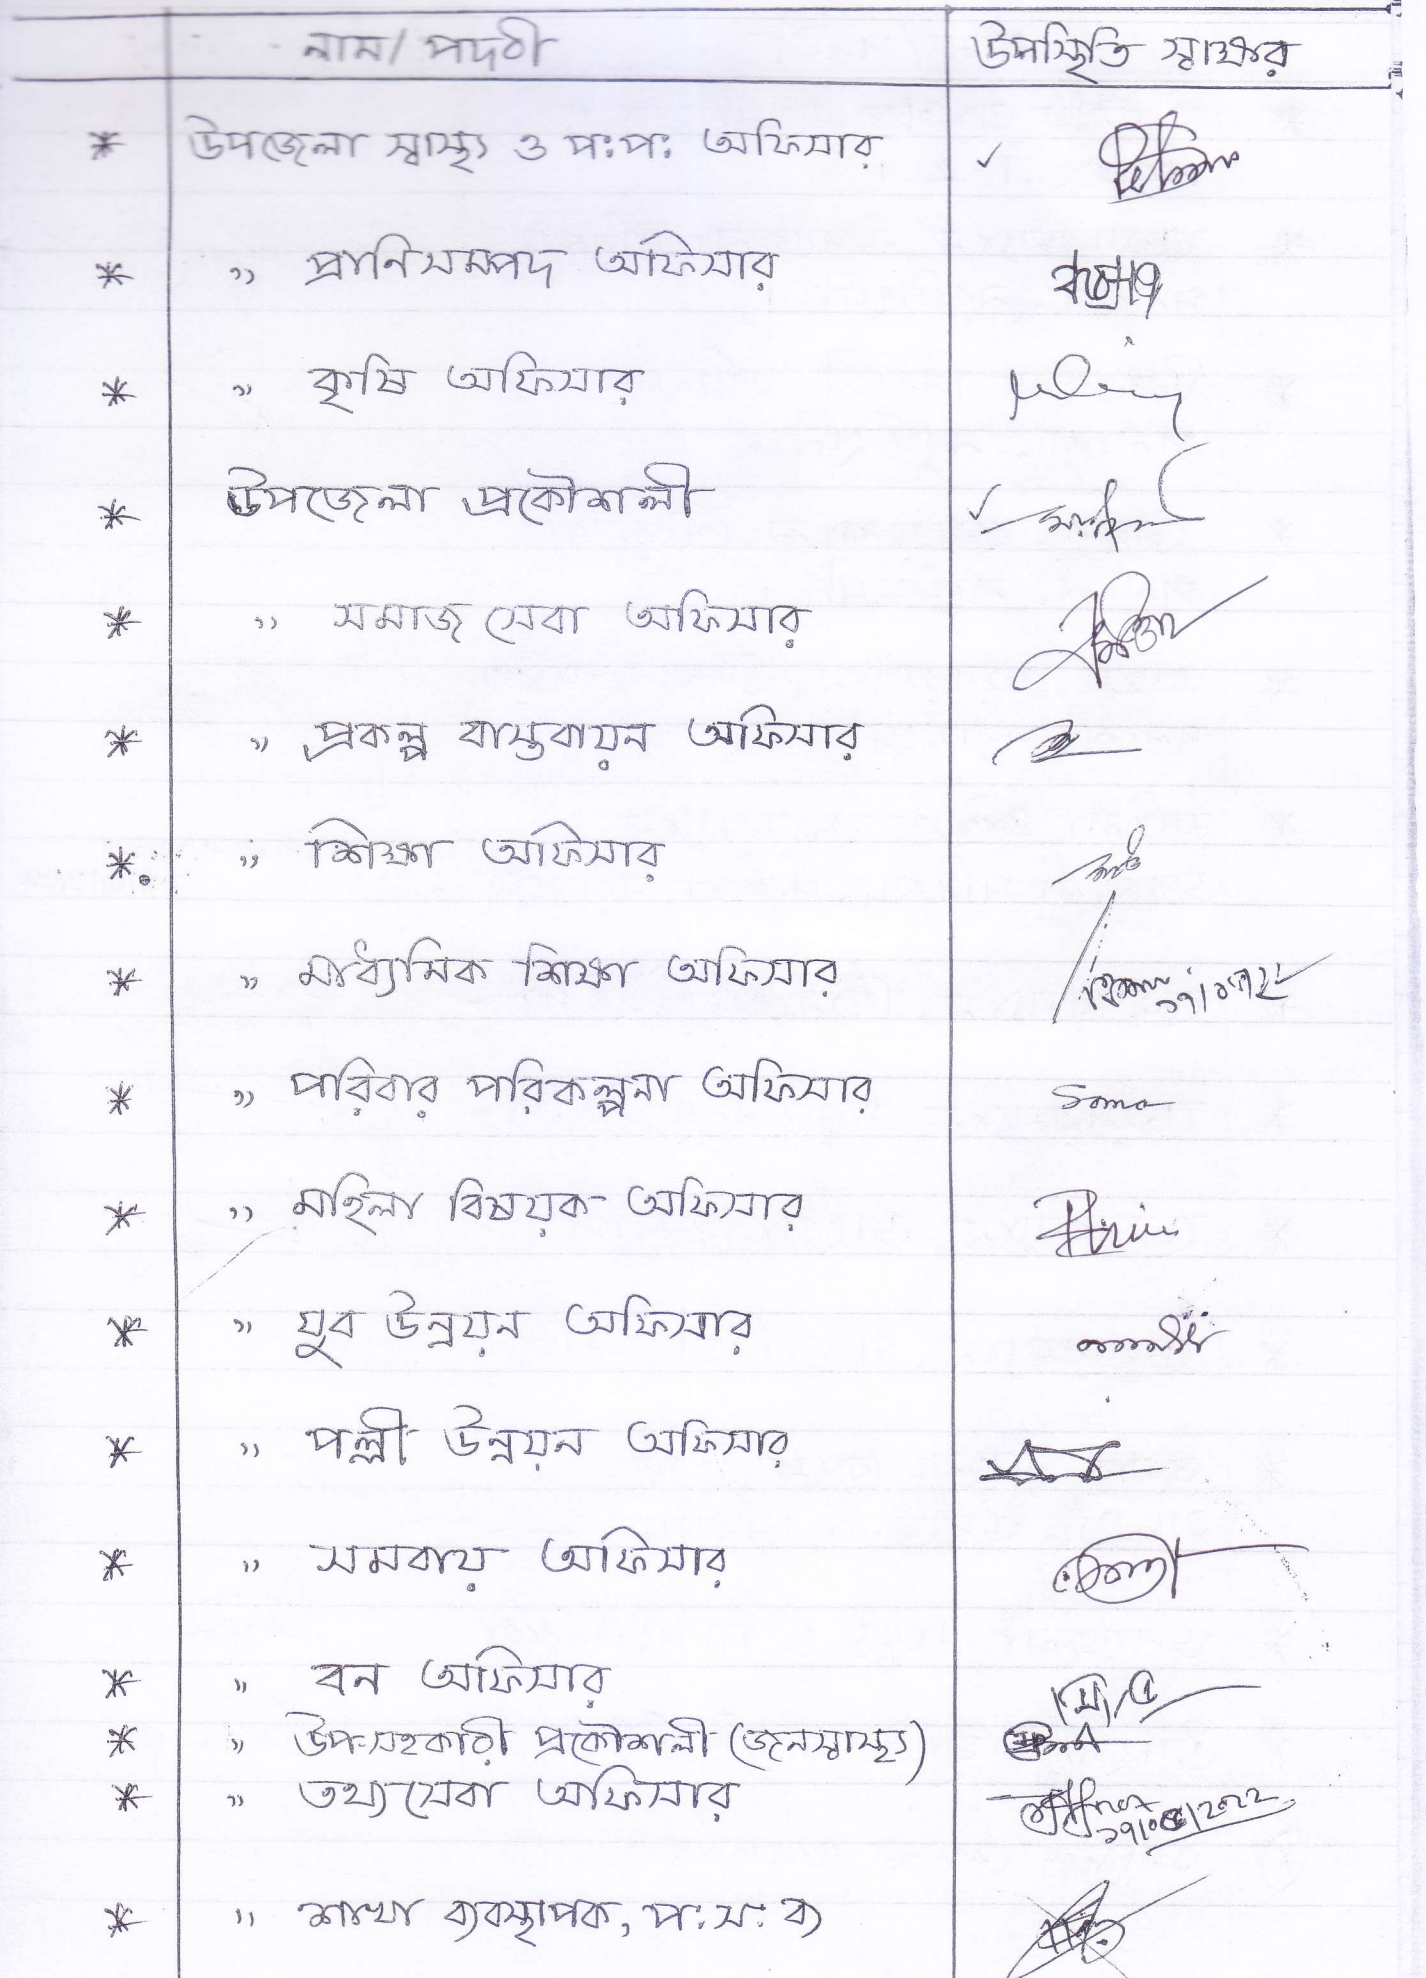 নাম/পদবী উপস্থিতি স্বাক্ষর
* উপজেলা স্বাস্থ্য ও প:প: অফিসার ✓
* " প্রাণিসম্পদ অফিসার
* " কৃষি অফিসার
* উপজেলা প্রকৌশলী ✓
* " সমাজ সেবা অফিসার
* " প্রকল্প বাস্তবায়ন অফিসার
* " শিক্ষা অফিসার
* " মাধ্যমিক শিক্ষা অফিসার
* " পরিবার পরিকল্পনা অফিসার
* " মহিলা বিষয়ক অফিসার
* " যুব উন্নয়ন অফিসার
* " পল্লী উন্নয়ন অফিসার
* " সমবায় অফিসার
* " বন অফিসার
* " উপ-সহকারী প্রকৌশলী (জনস্বাস্থ্য)
* " তথ্যসেবা অফিসার
* " শাখা ব্যবস্থাপক, প:স: ব্য